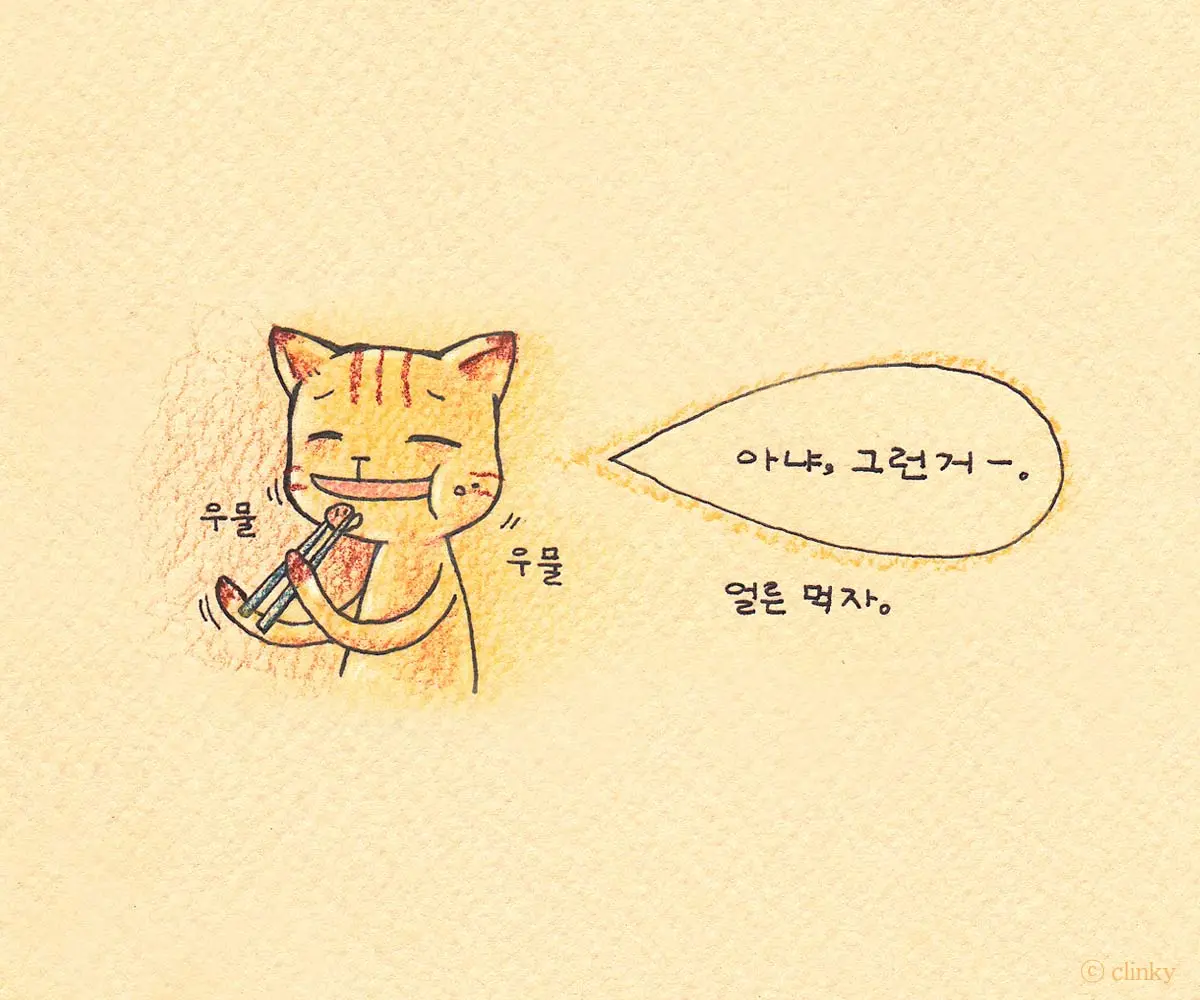 아냐, 그런거 ㅡ.
우물
우물
얼른 먹자.
ⓒ clinky